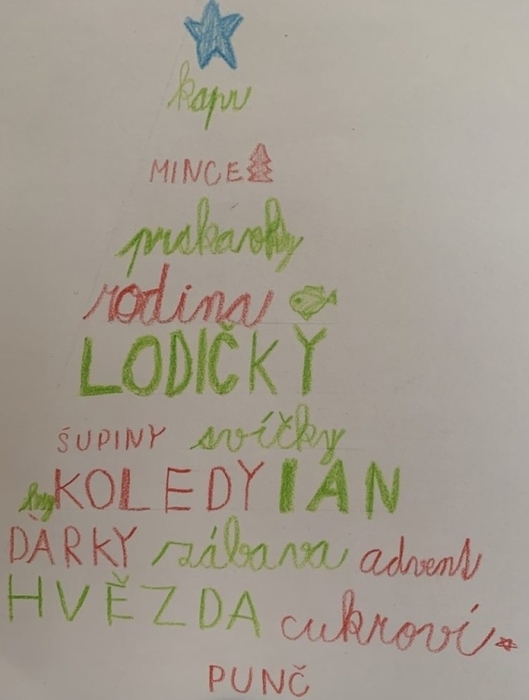 kapr
MINCE
prskavky
rodina
LODIČKY
ŠUPINY svíčky
KOLEDY IAN
DÁRKY zábava advent
HVĚZDA cukroví
PUNČ